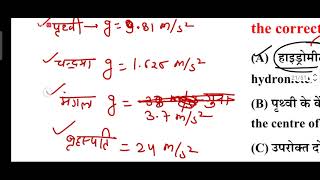 पृथ्वी → g = 9.81 m/s²
चन्द्रमा g = 1.626 m/s²
मंगल g =
3.7 m/s²
बृहस्पति = 24 m/s²
the correct
(A) हाइड्रोमी
hydrom
(B) पृथ्वी के कें
the centre of
(C) उपरोक्त दो